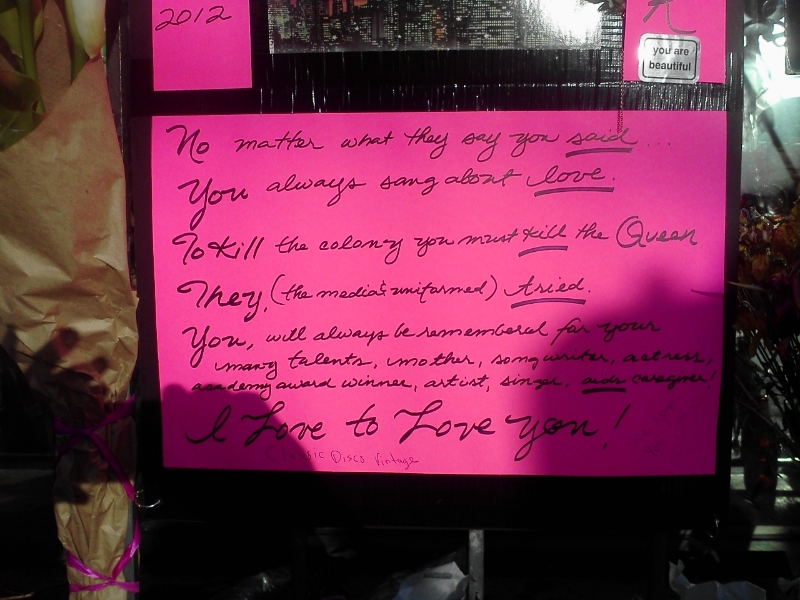 2012
you are
beautiful
No matter what they say you said...
You always sang about love.
To Kill the colony you must Kill the Queen
They, (the media & uniformed) tried.
You, will always be remembered for your
many talents, mother, songwriter, actress,
academy award winner, artist, singer, aids caregiver!
I Love to Love you!
Classic Disco Vintage